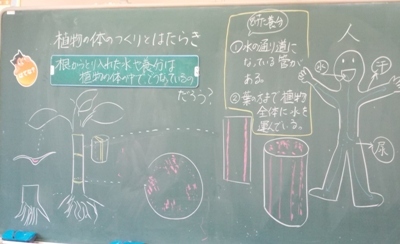 植物の体のつくりとはたらき
根からとり入れた水や養分は
植物の体の中で、どうなっているの
だろう?
①水の通り道に
なっている管が
ある。
②葉の方まで植物
全体に水を
運んでいる。
人
水
汗
尿